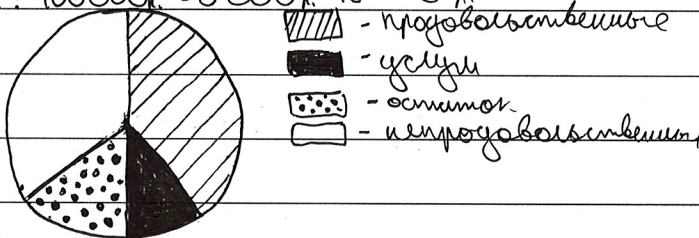 - продовольственные
- услуги
- остаток.
- непродовольственны